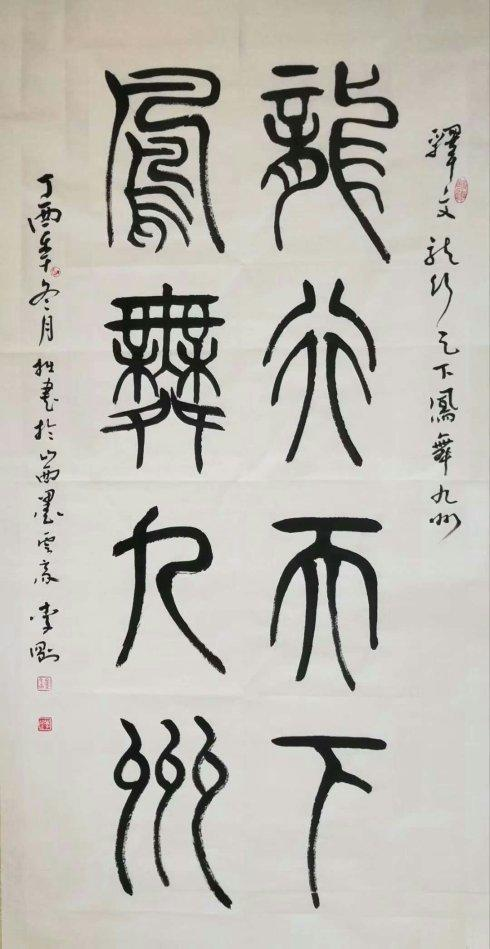 釋文 龍行天下鳳舞九州
龍行天下
鳳舞九州
丁酉年冬月 拙書於山西墨雲齋 李剛